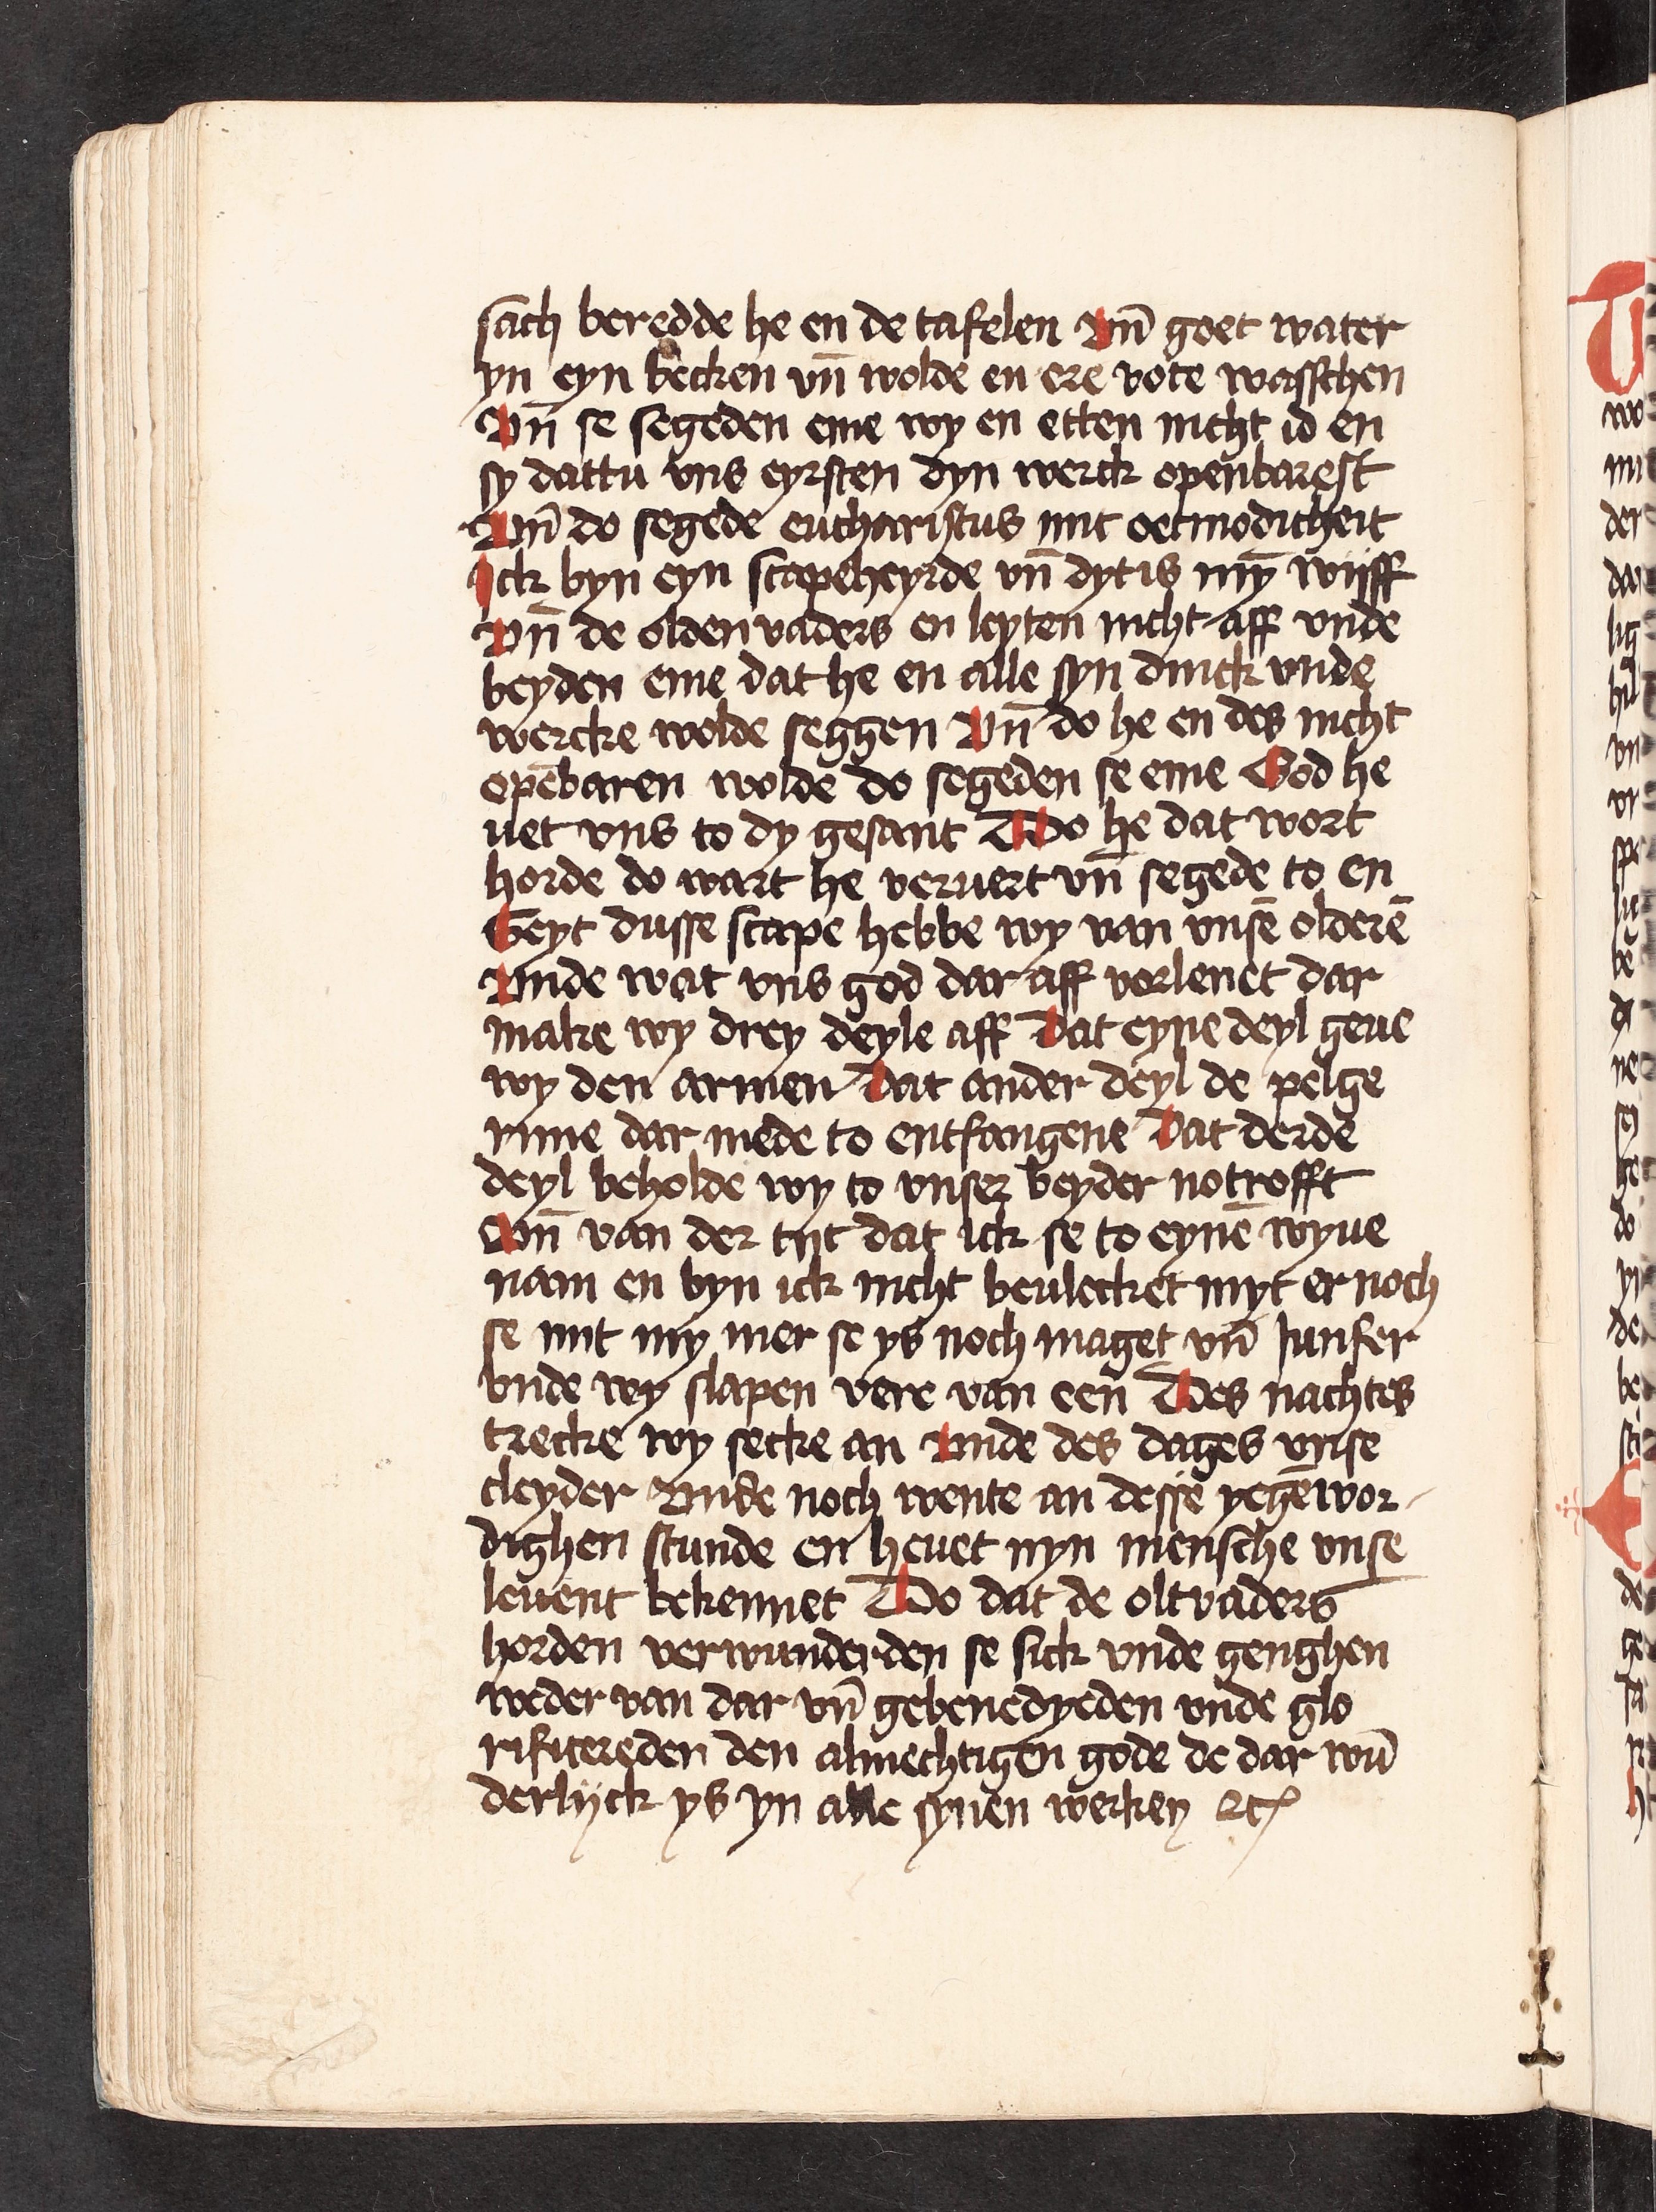 sach beredde he en de tafelen Vnn̄ goet water
yn eyn becken vn̄ wolde en ere vote wasschen
Vn̄ se segeden eme wy en etten nicht id en
sy dattu vns eyrsten dyn werck openbarest
Vnn̄ do segede eucharistus mit oetmodicheit
Ick byn eyn scapeheyrde vn̄ dyt is mȳ wijff
Vn̄ de olden vaders en leyten nicht aff vnde
beyden eme dat he en alle syn dinck vnde
wercke wolde seggen Vn̄ do he en des nicht
opēbaren wolde do segeden se eme God he
uet vns to dy gesant Do he dat wort
horde do wart he veruert vn̄ segede to en
Seyt dusse scape hebbe wy van vnsē olderē
Vnde wat vns god dar aff vorlenet dar
make wy drey deyle aff Dat eyne deyl geue
wy den armen Dat ander deyl de pelge
rime dar mede to entfangene Dat derde
deyl beholde wy to vnser beyder notrofft
Vn̄ van der tyt dat ick se to eynē wyue
nam en byn ick nicht beulecket myt er noch
se mit my mer se ys noch maget vn̄ Junfer
vnde wy slapen vere van een Des nachtes
trecke wy secke an Vnde des dages vnse
cleyder Vnde noch wente an desse yegēwor
dighen stunde en heuet nyn mensche vnse
leuent bekennet Do dat de oltvaders
horden verwunderden se sick vnde genghen
weder van dar vn̄ gebenedyeden vnde glo
rificereden den almechtigen gode de dar wū
derlijck ys yn alle synen werken ⁊c